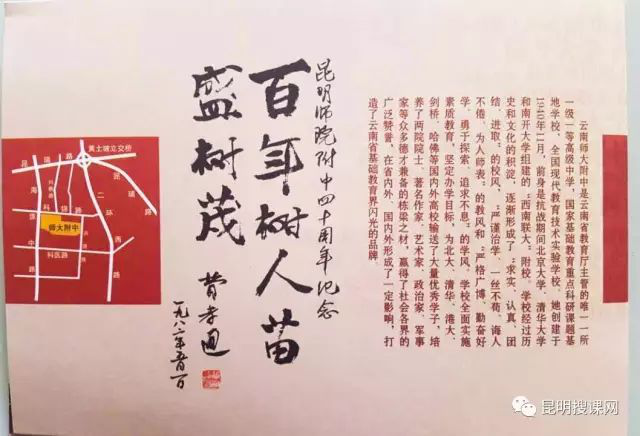 云南师大附中是云南省教育厅主管的唯一一所
一级一等高级中学，国家基础教育重点科研课题基
地学校，全国现代教育技术实验学校，她创建于
1940年11月，前身是抗战期间北京大学、清华大学
和南开大学组建的“西南联大”附校，学校经过历
史和文化的积淀，逐渐形成了“求实、认真、团
结、进取”的校风，“严谨治学、一丝不苟、诲人
不倦、为人师表”的教风和“严格广博、勤奋好
学、勇于探索、追求不息”的学风，学校全面实施
素质教育，坚定办学目标，为北大、清华、港大、
剑桥、哈佛等国内外高校输送了大量优秀学子，培
养了两院院士、著名作家、艺术家、政治家、军事
家等众多德才兼备的栋梁之材，赢得了社会各界的
广泛赞誉，在省内外、国内外形成了一定影响，打
造了云南省基础教育界闪光的品牌。
昆明师院附中四十周年纪念
百年树人苗
盛树茂
费孝通
一九八二年
黄土坡立交桥
昆瑞路
昆瑞路
二环西路
海源中路
师大附中
科医路
昆明搜课网